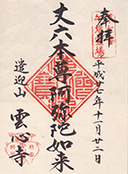 奉拝
平成廿二年十一月廿二日
丈六本尊阿弥陀如来
遣迎山
雲心寺